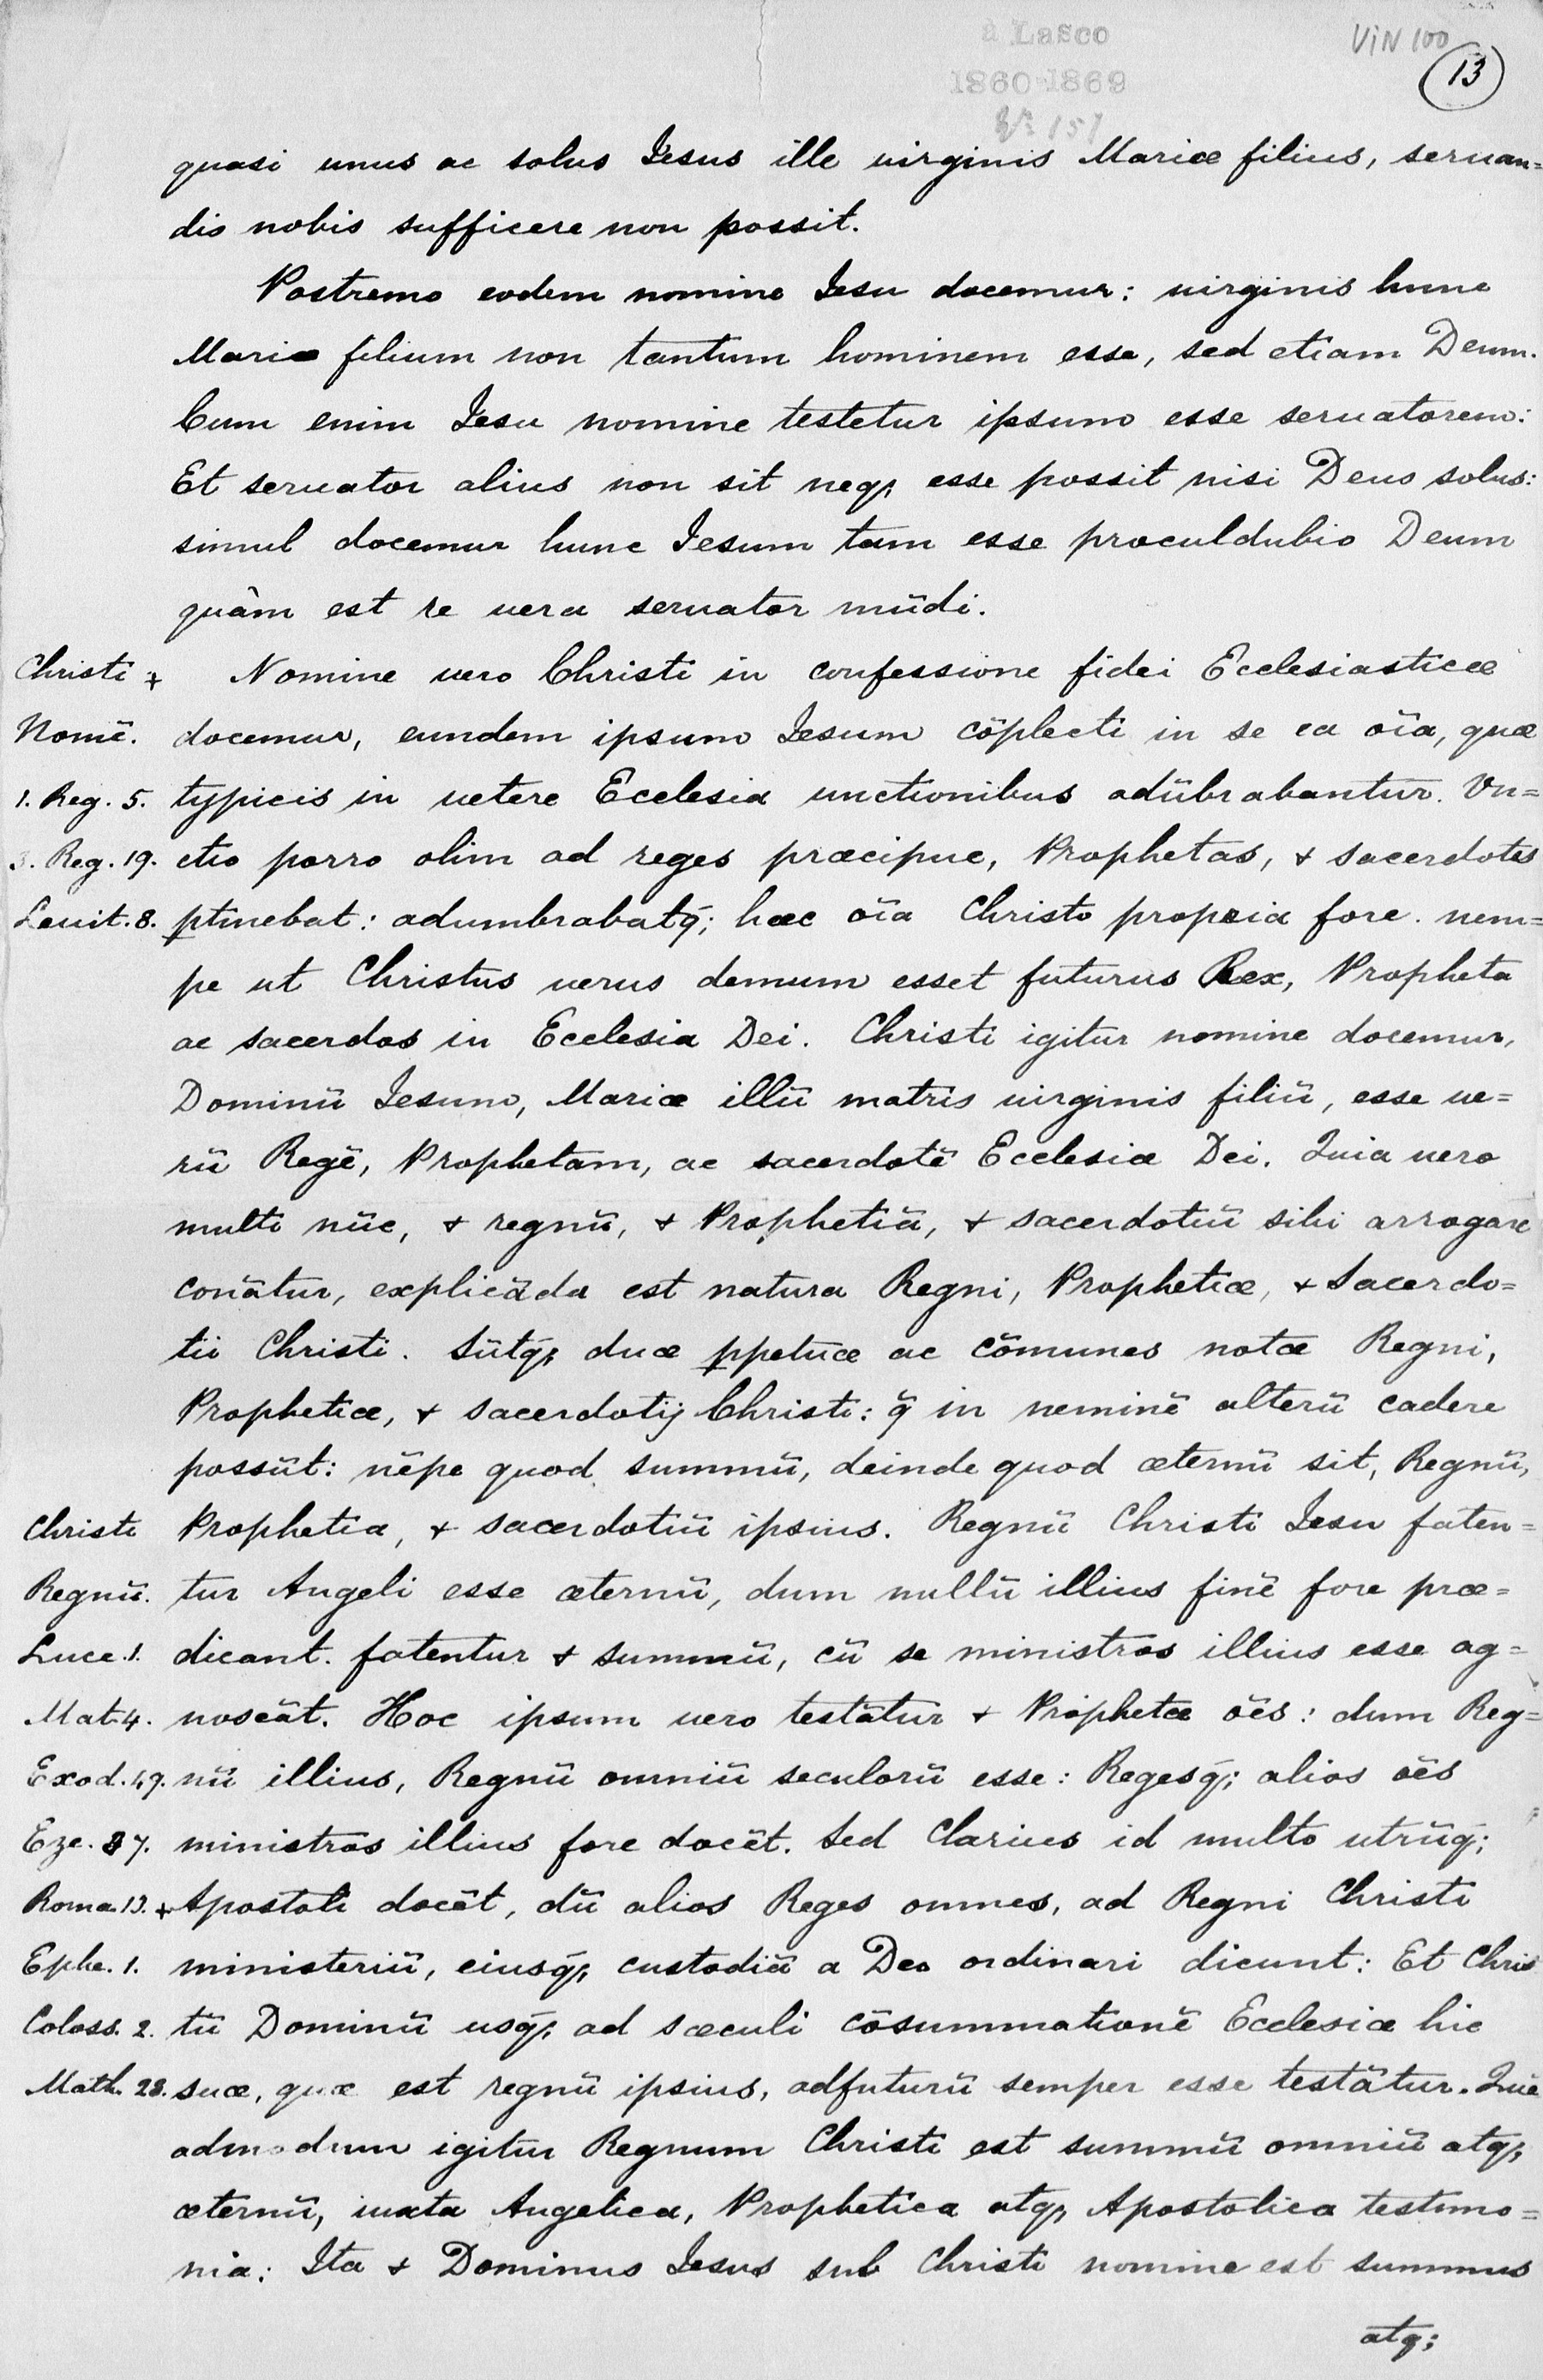 à Lasco
1860-1869
№ 157
VIN 100
13
quasi unus ac solus Iesus ille uirginis Mariæ filius, seruan=
dis nobis sufficere non possit.
Postremo eodem nomine Iesu docemur: uirginis hunc
Mariæ filium non tantum hominem esse, sed etiam Deum.
Cum enim Iesu nomine testetur ipsum esse seruatorem:
Et seruator alius non sit neq; esse possit nisi Deus solus:
simul docemur hunc Iesum tam esse proculdubio Deum
quàm est re uera seruator mūdi.
Christi + Nomine uero Christi in confessione fidei Ecclesiasticæ
Nomē. docemur, eundem ipsum Iesum cōplecti in se ea oīa, quæ
1. Reg. 5. typicis in uetere Ecclesia unctionibus adūbrabantur. Vn=
3. Reg. 19. ctio porro olim ad reges præcipue, Prophetas, & sacerdotes
Leuit. 8. ptinebat: adumbrabatq́; hæc oīa Christo propria fore. nem=
pe ut Christus uerus demum esset futurus Rex, Propheta
ac sacerdos in Ecclesia Dei. Christi igitur nomine docemur,
Dominū Iesum, Mariæ illū matris uirginis filiū, esse ue=
rū Regē, Prophetam, ac sacerdotē Ecclesiæ Dei. Quia uero
multi nūc, & regnū, & Prophetiā, & sacerdotiū sibi arrogare
conātur, explicāda est natura Regni, Prophetiæ, & Sacerdo=
tii Christi. Sūtq́; duæ ppetuæ ac cōmunes notæ Regni,
Prophetiæ, & sacerdotij Christi: q̄ in neminē alterū cadere
possūt: nēpe quod summū, deinde quod æternū sit, Regnū,
Christi Prophetia, & sacerdotiū ipsius. Regnū Christi Iesu faten=
Regnū. tur Angeli esse æternū, dum nullū illius finē fore præ=
Luce. 1. dicant. fatentur & summū, cū se ministros illius esse ag=
Mat. 4. noscāt. Hoc ipsum uero testātur & Prophetæ oēs: dum Reg=
Exod. 49. nū illius, Regnū omniū seculorū esse: Regesq́; alios oēs
Eze. 37. ministros illius fore docēt. Sed clarius id multo utrūq́;
Roma. 13. + Apostoli docēt, dū alios Reges omnes, ad Regni Christi
Ephe. 1. ministeriū, eiusq́; custodiā a Deo ordinari dicunt: Et Chris
Coloss. 2. tū Dominū usq́; ad sæculi cōsummationē Ecclesiæ hic
Math. 28. suæ, quæ est regnū ipsius, adfuturū semper esse testātur. Quē
admodum igitur Regnum Christi est summū omniū atq;
æternū, iuxta Angelica, Prophetica atq; Apostolica testimo=
nia: Ita & Dominus Iesus sub Christi nomine est summus
atq;